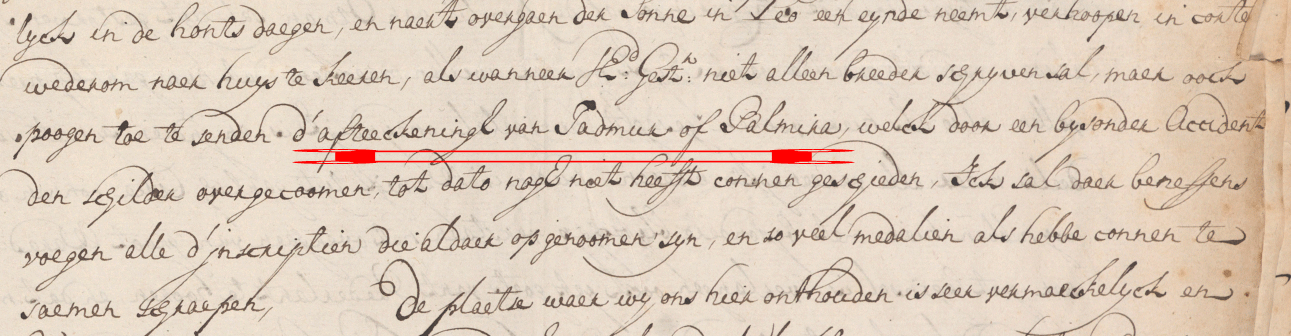 lyck in de honts daegen, en naert overgaen der Sonne in Leo een eynde neemt, verhoopen in corte
wederom naer huys te keeren, als wanneer UEd: Gestr: niet alleen breeder schryven sal, maer oock
poogen toe te senden d'afteeckeningh van Tadmur of Palmira, welck door een bysonder Accident
den schilder overgecoomen, tot dato nogh niet heefft connen geschieden, Ick sal daer beneffens
voegen alle d'jnscriptien die aldaer opgenoomen syn, en so veel medalien als hebbe connen te
saemen schraepen, De plaetse waer wy ons hier onthouden is seer vermaeckelyck en